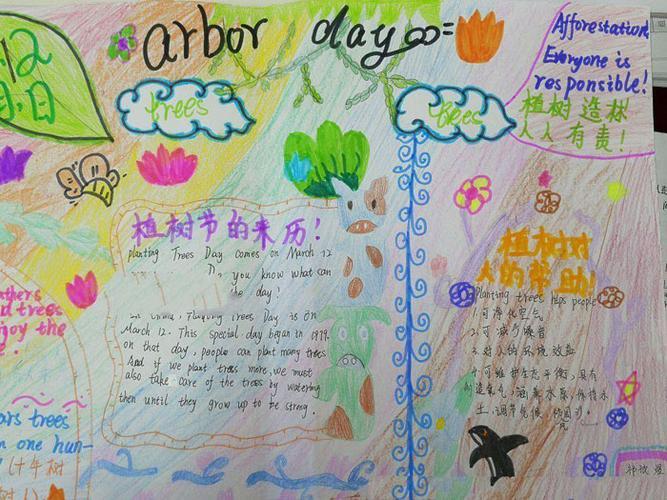 12
月 日
arbor day
trees
trees
Afforestation,
Everyone is
responsible!
植树造林
人人有责!
植树节的来历!
planting Trees Day comes on March 12
you know what can
the day!
Trees Day is on
March 12. This special day began in 1979.
on that day, people can plant many trees
And if we plant trees more, we must
also take care of the trees by watering
then until they grow up to be strong.
植树对
人的帮助!
Planting trees helps people
1.可净化空气
2.可减少噪音
3.对人的环境效益
4.可维护生态平衡,具有
制造氧气,涵养水源,保持水
土,调节气候
thers
d trees
joy the
e.
ars trees
n one hun-
(十年树